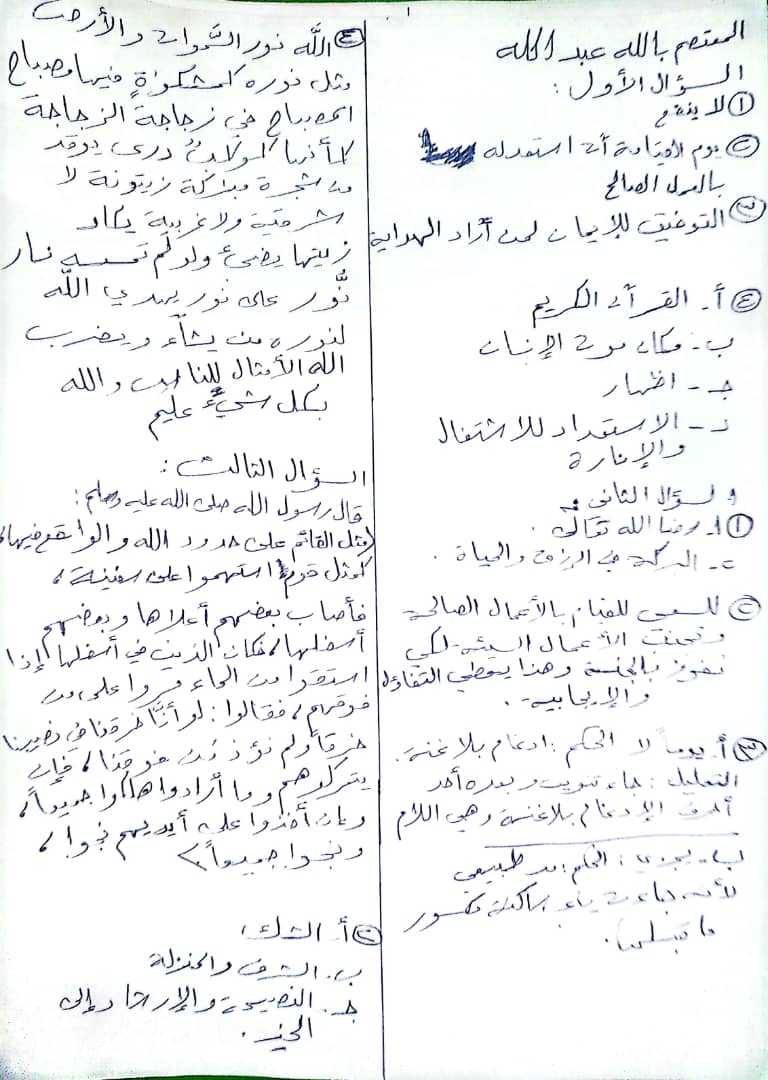 المعتصم بالله عبد الله
السؤال الأول:
① لا ينفع
② يوم القيامة أن استعد له
بالعمل الصالح
③ التوفيق للإيمان لمن أراد الهداية
④ أ- القرآن الكريم
ب- مكان موت الإنسان
جـ - اظهار
د - الاستعداد للاشتعال
والإنارة
السؤال الثاني:
① أ. رضا الله تعالى.
ب- البركة في الرزق والحياة.
② للسعي للقيام بالأعمال الصالحة
وتجنب الأعمال السيئة لكي
نفوز بالجنة وهذا يعطي التفاؤل
والإيجابية.
③ أ. يوماً لا الحكم: ادغام بلا غنة.
التعليل: جاء تنوين وبعده أحد
أحرف الإدغام بلا غنة وهي اللام
ب- يجزي: الحكم: مد طبيعي
لأنه جاءت ياء ساكنة مكسور
ما قبلها.
④ الله نور السموات والأرض
مثل نوره كمشكوةٍ فيها مصباح
المصباح في زجاجة الزجاجة
كأنها كوكبٌ دري يوقد
من شجرة مباركة زيتونة لا
شرقية ولا غربية يكاد
زيتها يضيء ولو لم تمسسه نار
نُّور على نور يهدي الله
لنوره من يشآء ويضرب
الله الأمثال للناس والله
بكل شيءٍ عليم
السؤال الثالث:
قال رسول الله صلى الله عليه وسلم:
(مثل القائم على حدود الله والواقع فيها،
كمثل قوم استهموا على سفينة،
فأصاب بعضهم أعلاها وبعضهم
أسفلها، فكان الذين في أسفلها إذا
استقوا من الماء مروا على من
فوقهم، فقالوا: لو أنَّا خرقنا في نصيبنا
خرقاً ولم نؤذ من فوقنا، فإن
يتركوهم وما أرادوا هلكوا جميعاً،
وإن أخذوا على أيديهم نجوا،
ونجوا جميعاً)
② أ- الشك.
ب. الشرف والمنزلة
جـ. النصيحة والإرشاد إلى
الخير.